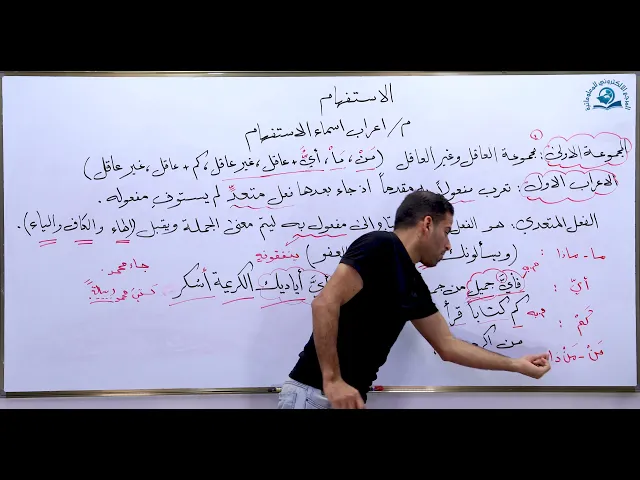 الاستفهام
م/ اعراب اسماء الاستفهام
المجموعة الاولى: مجموعة العاقل وغير العاقل (مَنْ، مَا، أيُّ + عاقل، غير عاقل، كم + عاقل، غير عاقل)
الاعراب الاول: تعرب مفعولاً به مقدماً اذ جاء بعدها فعل متعدٍّ لم يستوفِ مفعوله.
الفعل المتعدي: هو الفعل الى مفعول به ليتم معنى الجملة ويقبل (الهاء والكاف والياء).
ما - ماذا: (ويسألونك ينفقون العفو)
جاء محمد
أيّ: فأيَّ جميلٍ من أيَّ أياديك الكريمة أشكر
كَمْ: كم كتاباً قرأ
مَنْ - مَنْ ذا من